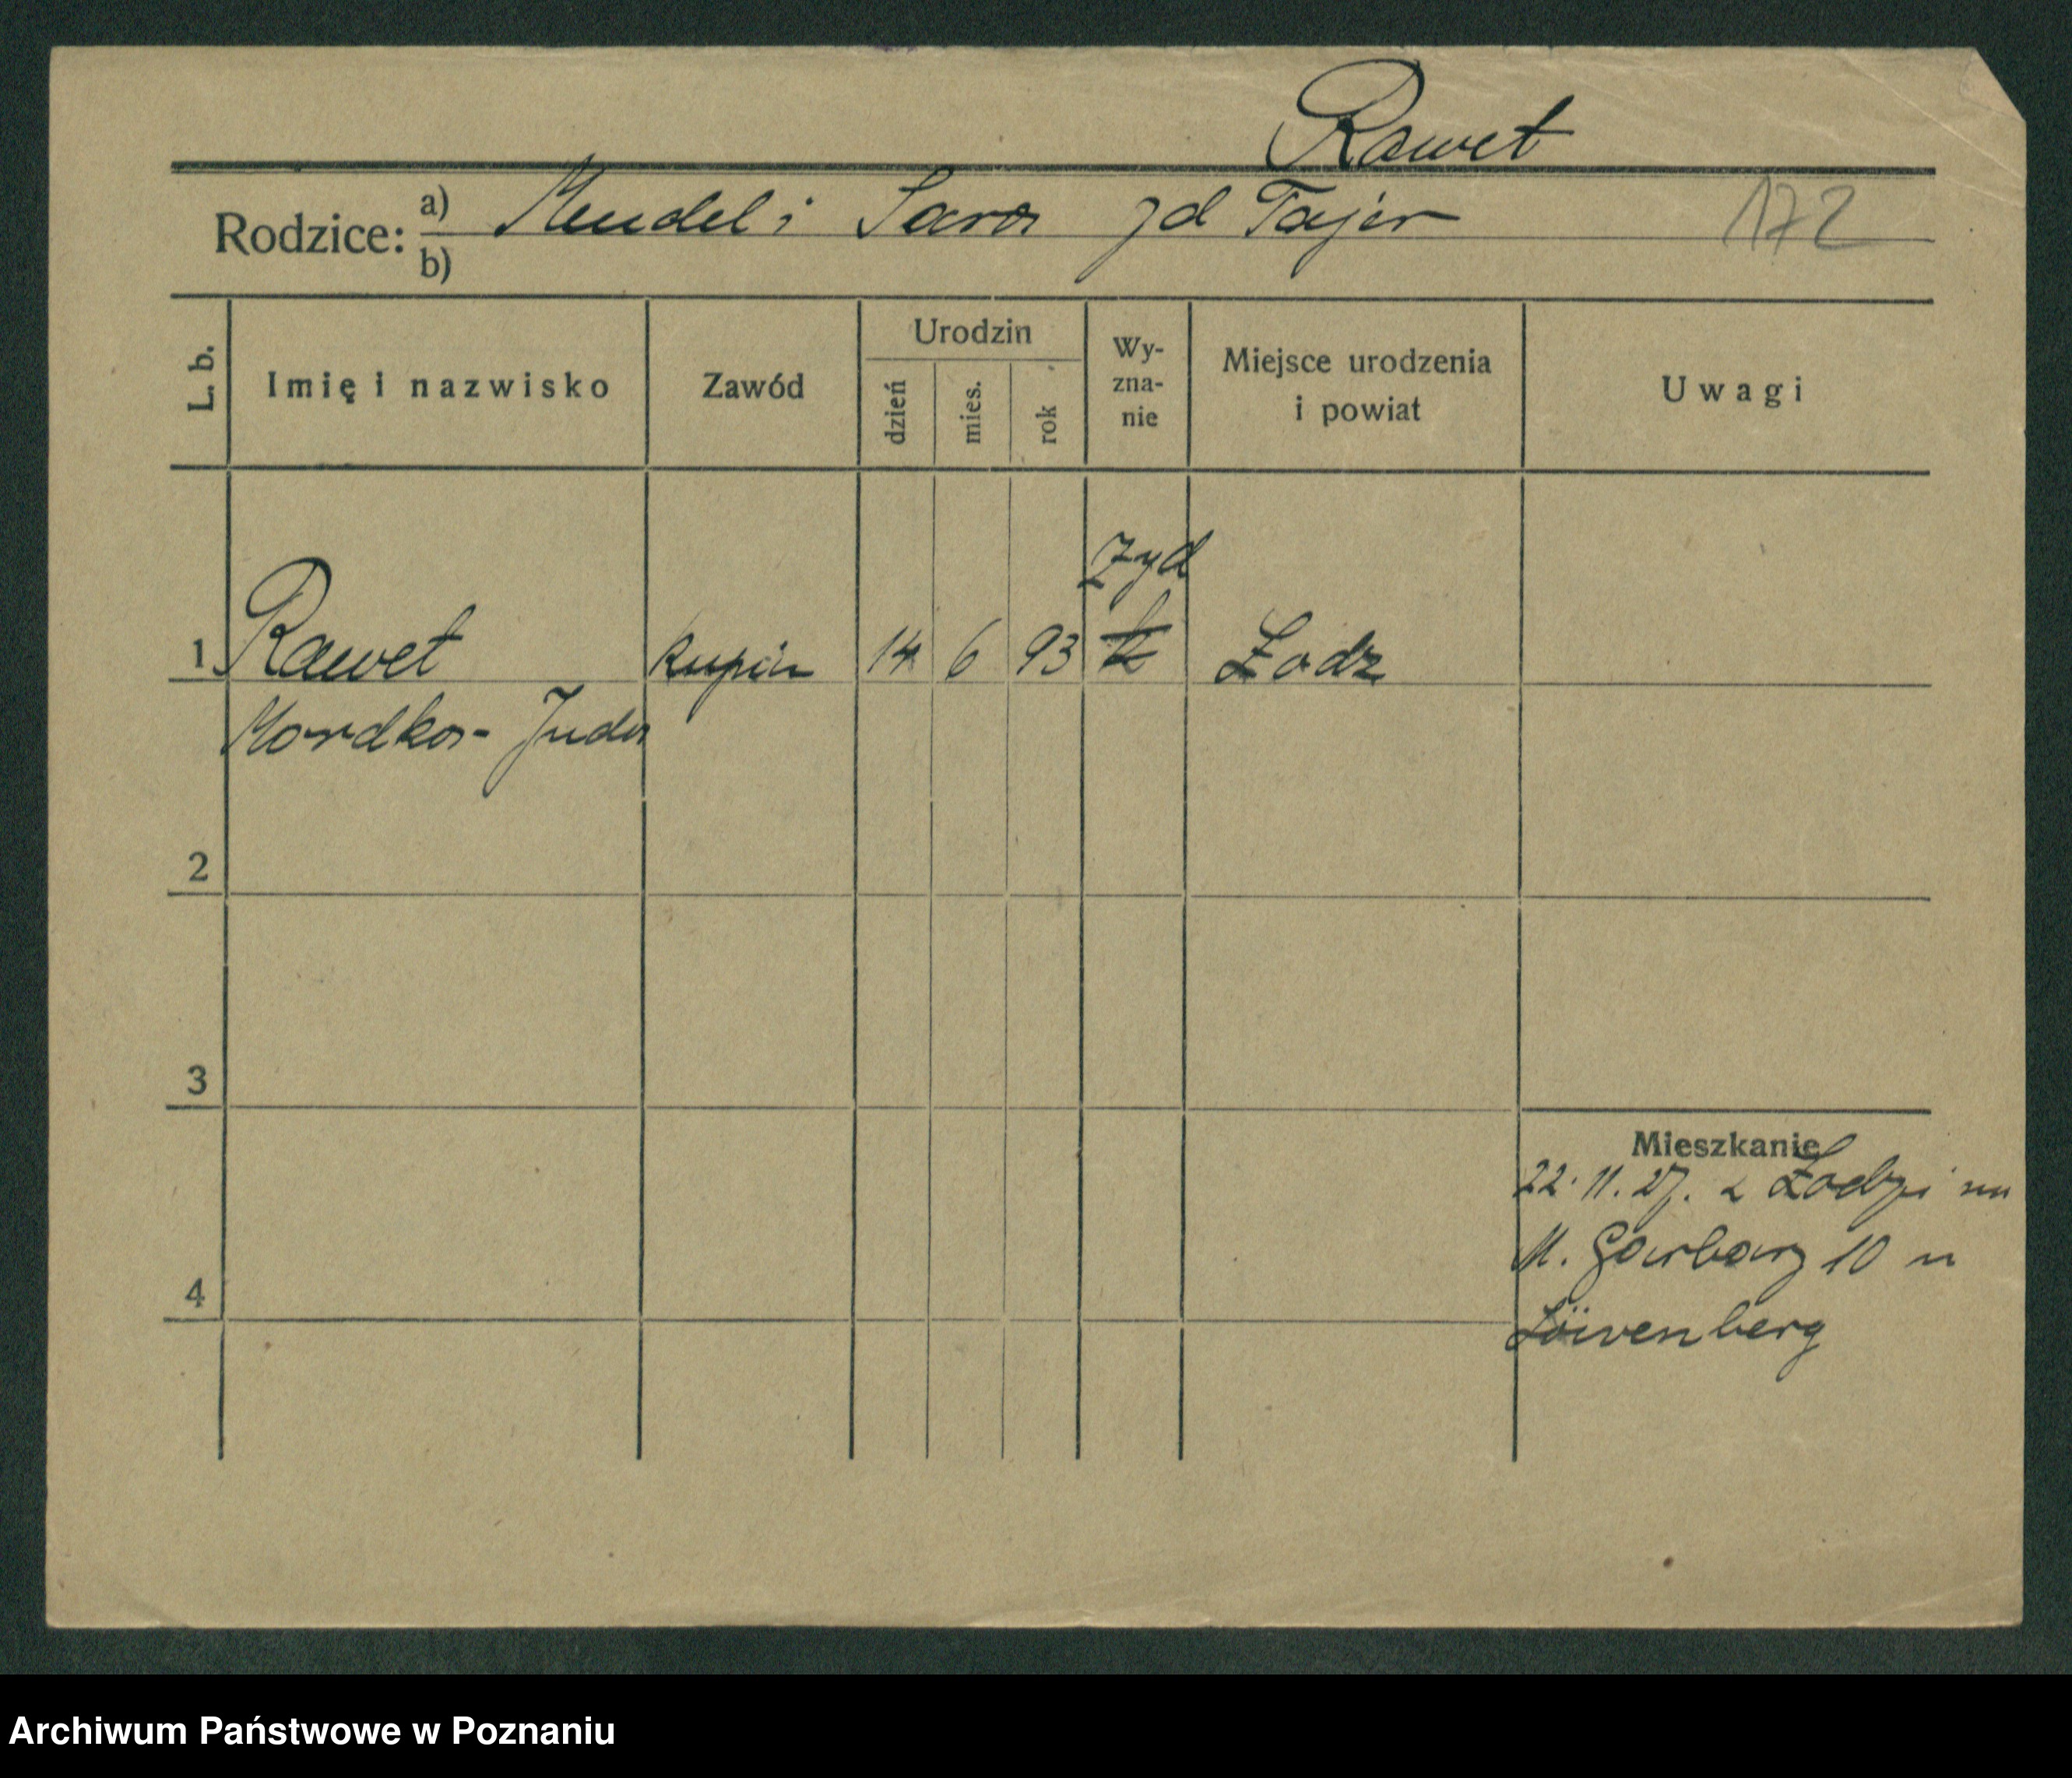 Rawet
Rodzice: a) Mendel i Sara zd Tajer 172
b)
L. b. Imię i nazwisko Zawód Urodzin dzień mies. rok Wy-zna-nie Miejsce urodzenia i powiat Uwagi
żyd
1 Rawet kupiec 14 6 93 k Łodz
Mordka-Juda
2
3
Mieszkanie
22.11.27. z Łodzi na
4 M. Garbary 10 u
Löwenberg
Archiwum Państwowe w Poznaniu